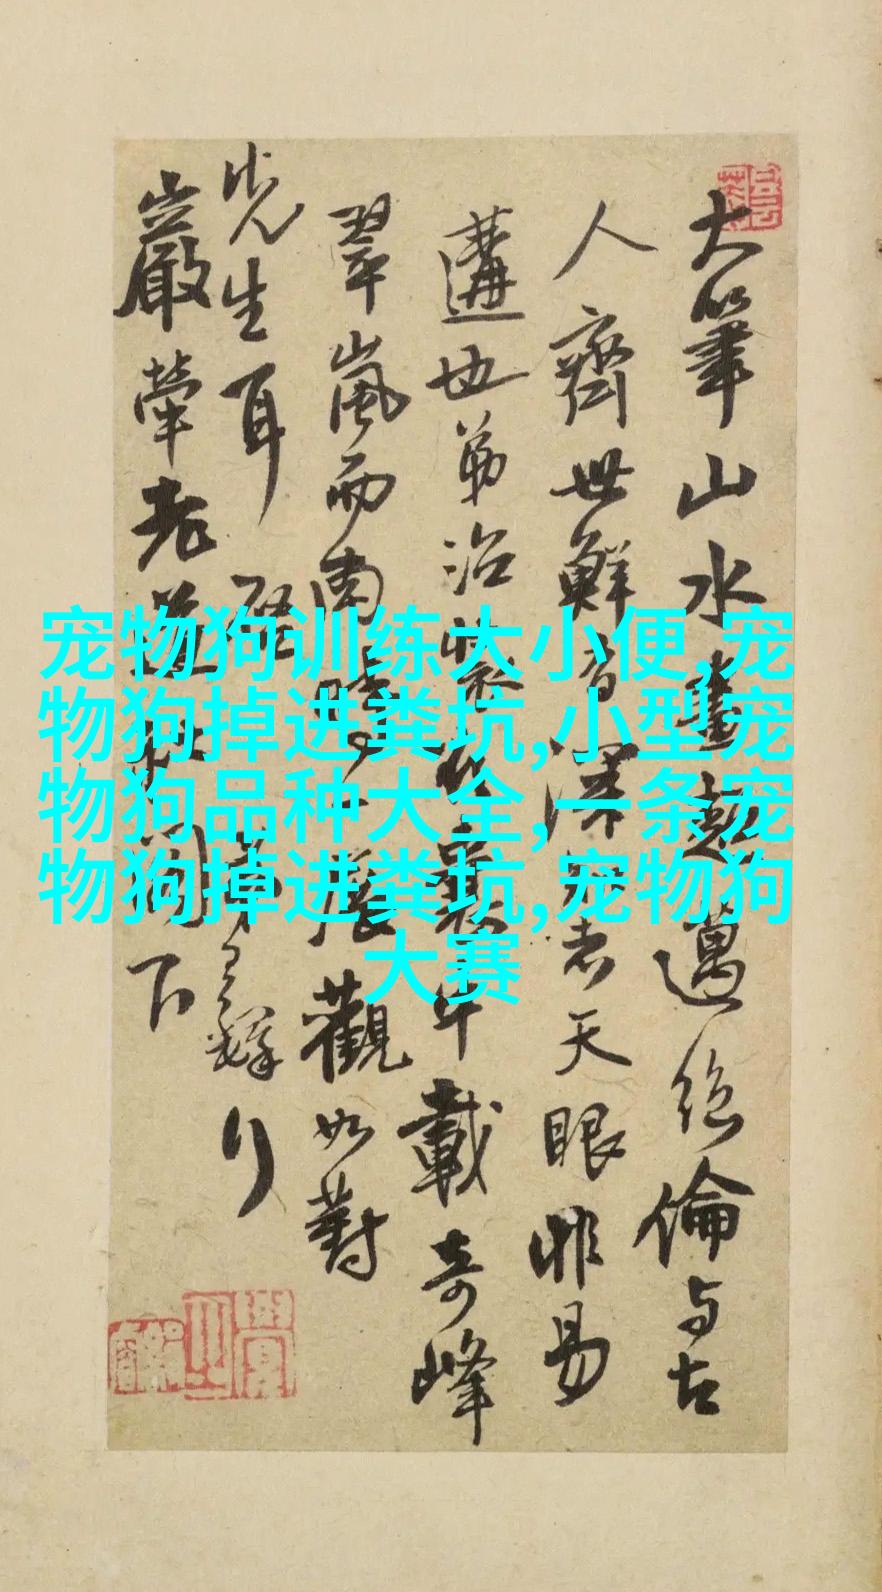 大筆山水超邁絶倫与古
人齊世鮮者天眼非易
遘也弟治裝中載奇峰
翠嵐而南時一展觀如對
先生耳
巖犖老下
宠物狗训练大小便,宠
物狗掉进粪坑,小型宠
物狗品种大全,一条宠
物狗掉进粪坑,宠物狗
大赛